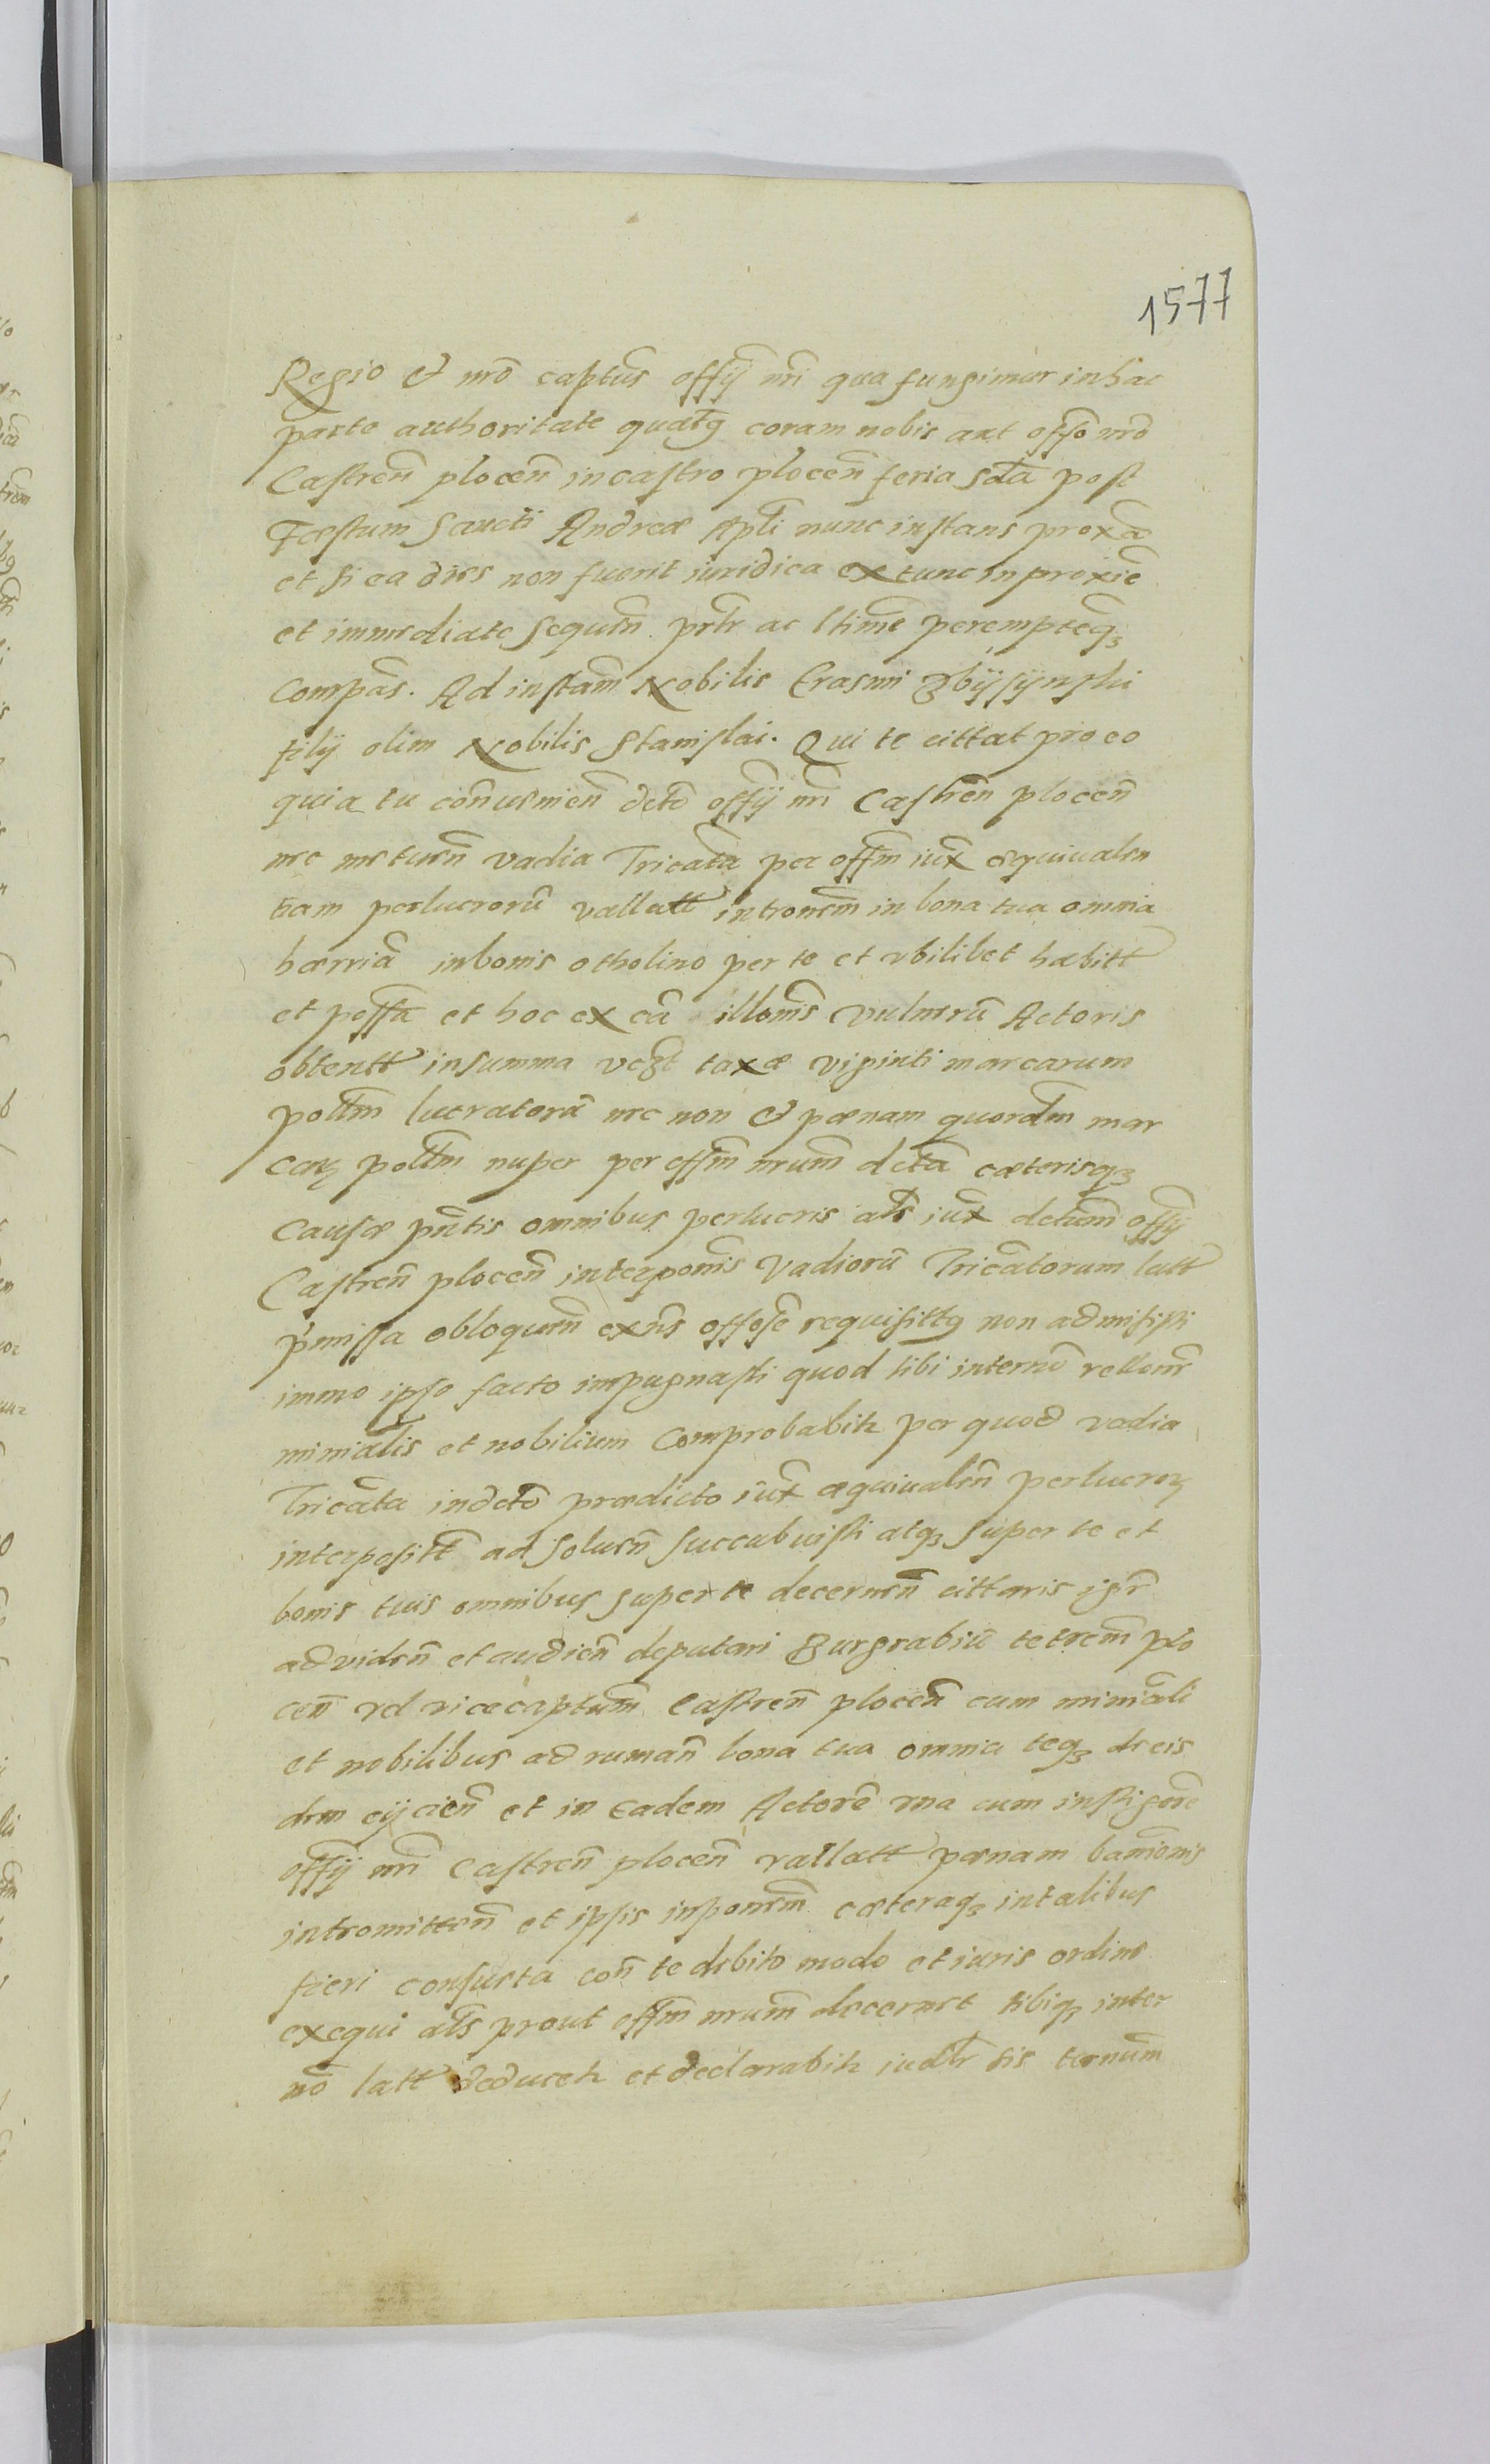 1577
Regio & nrō captūs offÿ nri qua fungimur in hac
parte authoritate quatꝫ coram nobis aut offo nrō
Castreñ plocen̄ in castro plocen̄ feria Sctā post
Fæstum Sancti Andreæ Apli nunc instans proxā
et si ea dies non fuerit iuridica ex tunc in proxiē
et immediate sequeñ. prtr ac ltimē perempteqꝫ
Compās. Ad instam̄ Nobilis Erasmi Zbÿsÿnski
filÿ olim Nobilis Stanislai. Qui te cittat pro eo
quia tu con̄uenien̄ dctō offÿ nri Castren̄ plocen̄
nec metueñ vadia Tricatā per offm̄ iux̄ æquiualen
tiam perlucrorū vallatt intronem̄ in bona tua omnia
hærriā in bonis otholino per te et vbilibet habitt
et possā et hoc ex cā illōnis vulnerū Actoris
obtentt in summa taxæ viginti marcarum
polm̄ lucratorū nec non & pænam quordm̄ mar
carꝫ polm̄ nuper per offm̄ nrum̄ dctā cæterisqꝫ
causæ pn̄tis omnibus perlucris als iux̄ dctum̄ offÿ
Castren̄ plocen̄ interponis Vadiorū Tricātorum latt
p̄missa obloqueñ exn̄s offose requisittꝫ non admisisti
immo ipso facto impugnasti quod tibi internō rellone
minialis et nobilium Comprobabitr per quod vadia
Tricāta in dctō prædicto iux̄ æquiualeñ perlucrorꝫ
interpositt ad solueñ succubuisti atqꝫ super te et
bonis tuis omnibus super te decerneñ cittaris igr̄
ad videñ et audieñ deputari Burgrabiū tetrem̄ plo
cen̄ vel vicecaptum̄ Castren̄ plocen̄ cum miniāli
et nobilibus ad ruman̄ bona tua omnia teqꝫ de eis
dem eÿcien̄ et in eadem Actorē vna cum instigorē
offÿ nri Castren̄ plocen̄ vallatt pænam bannōnis
intromitteñ et ipsis inponem̄ cæteraqꝫ in talibus
fieri consueta con̄ te debito modo et iuris ordine
exequi als prout offm̄ nrum̄ decernet tibiqꝫ inter
nō latt deducetr et declarabitr iudtr sis ternum̄